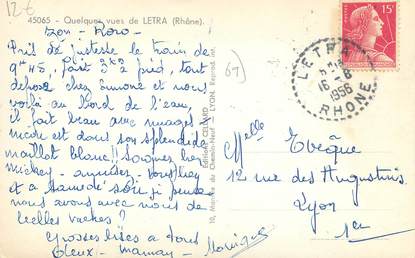 12-6
45065 - Quelques vues de LETRA (Rhône).
bon - Roro -
Pris de justesse le train de
9h45, fait 3k2 pied, tout
dehors chez Simone et nous
voilà au bord de l'eau,
il fait beau avec nuages
est dans son splendide
maillot blanc!!
mickey -
et à samedi soir je pense
nous avons avec nous de
belles vaches ?
Grosses bises à tous
Monique
Editions CELLARD
10, Montée du Chemin-Neuf - LYON. Reprod. int.
69
LETRA
16 - 8
1956
RHONE
15F
Melle Evêque
12 rue des Augustins
Lyon
1er